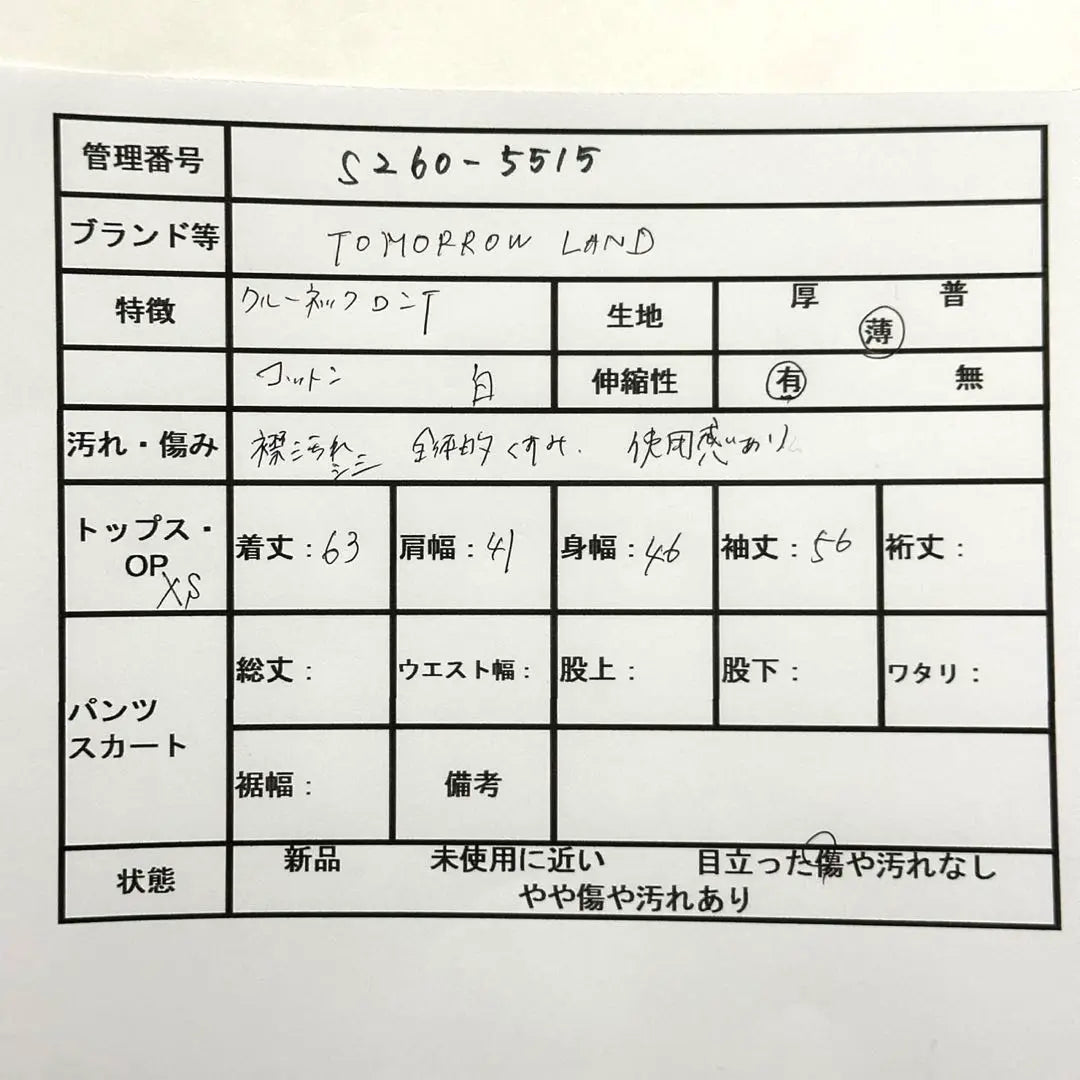 管理番号 S260-5515
ブランド等 TOMORROW LAND
特徴 クルーネックロンT 生地 厚 普 薄
コットン 白 伸縮性 有 無
汚れ・傷み 襟汚れシミ 全体的くすみ. 使用感あり
トップス・OP XS 着丈:63 肩幅:41 身幅:46 袖丈:56 裄丈:
パンツ スカート 総丈: ウエスト幅: 股上: 股下: ワタリ:
裾幅: 備考
状態 新品 未使用に近い 目立った傷や汚れなし
やや傷や汚れあり